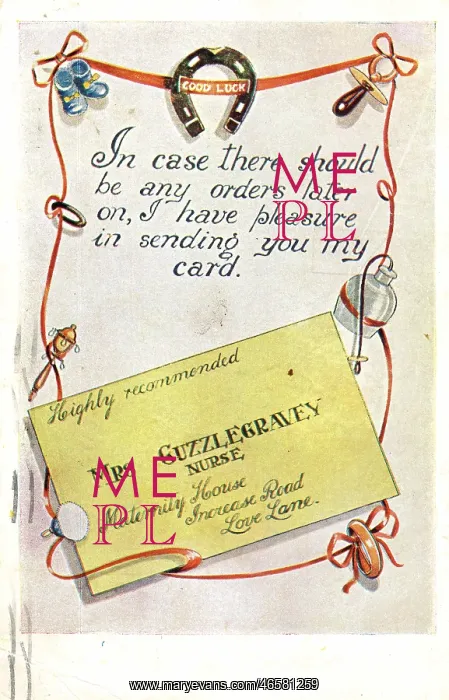 GOOD LUCK
In case there should
be any orders later
on, I have pleasure
in sending you my
card.
Highly recommended
MRS GUZZLEGRAVEY
NURSE,
Maternity House
Increase Road
Love Lane.
ME
PL
ME
PL
www.maryevans.com/46581259